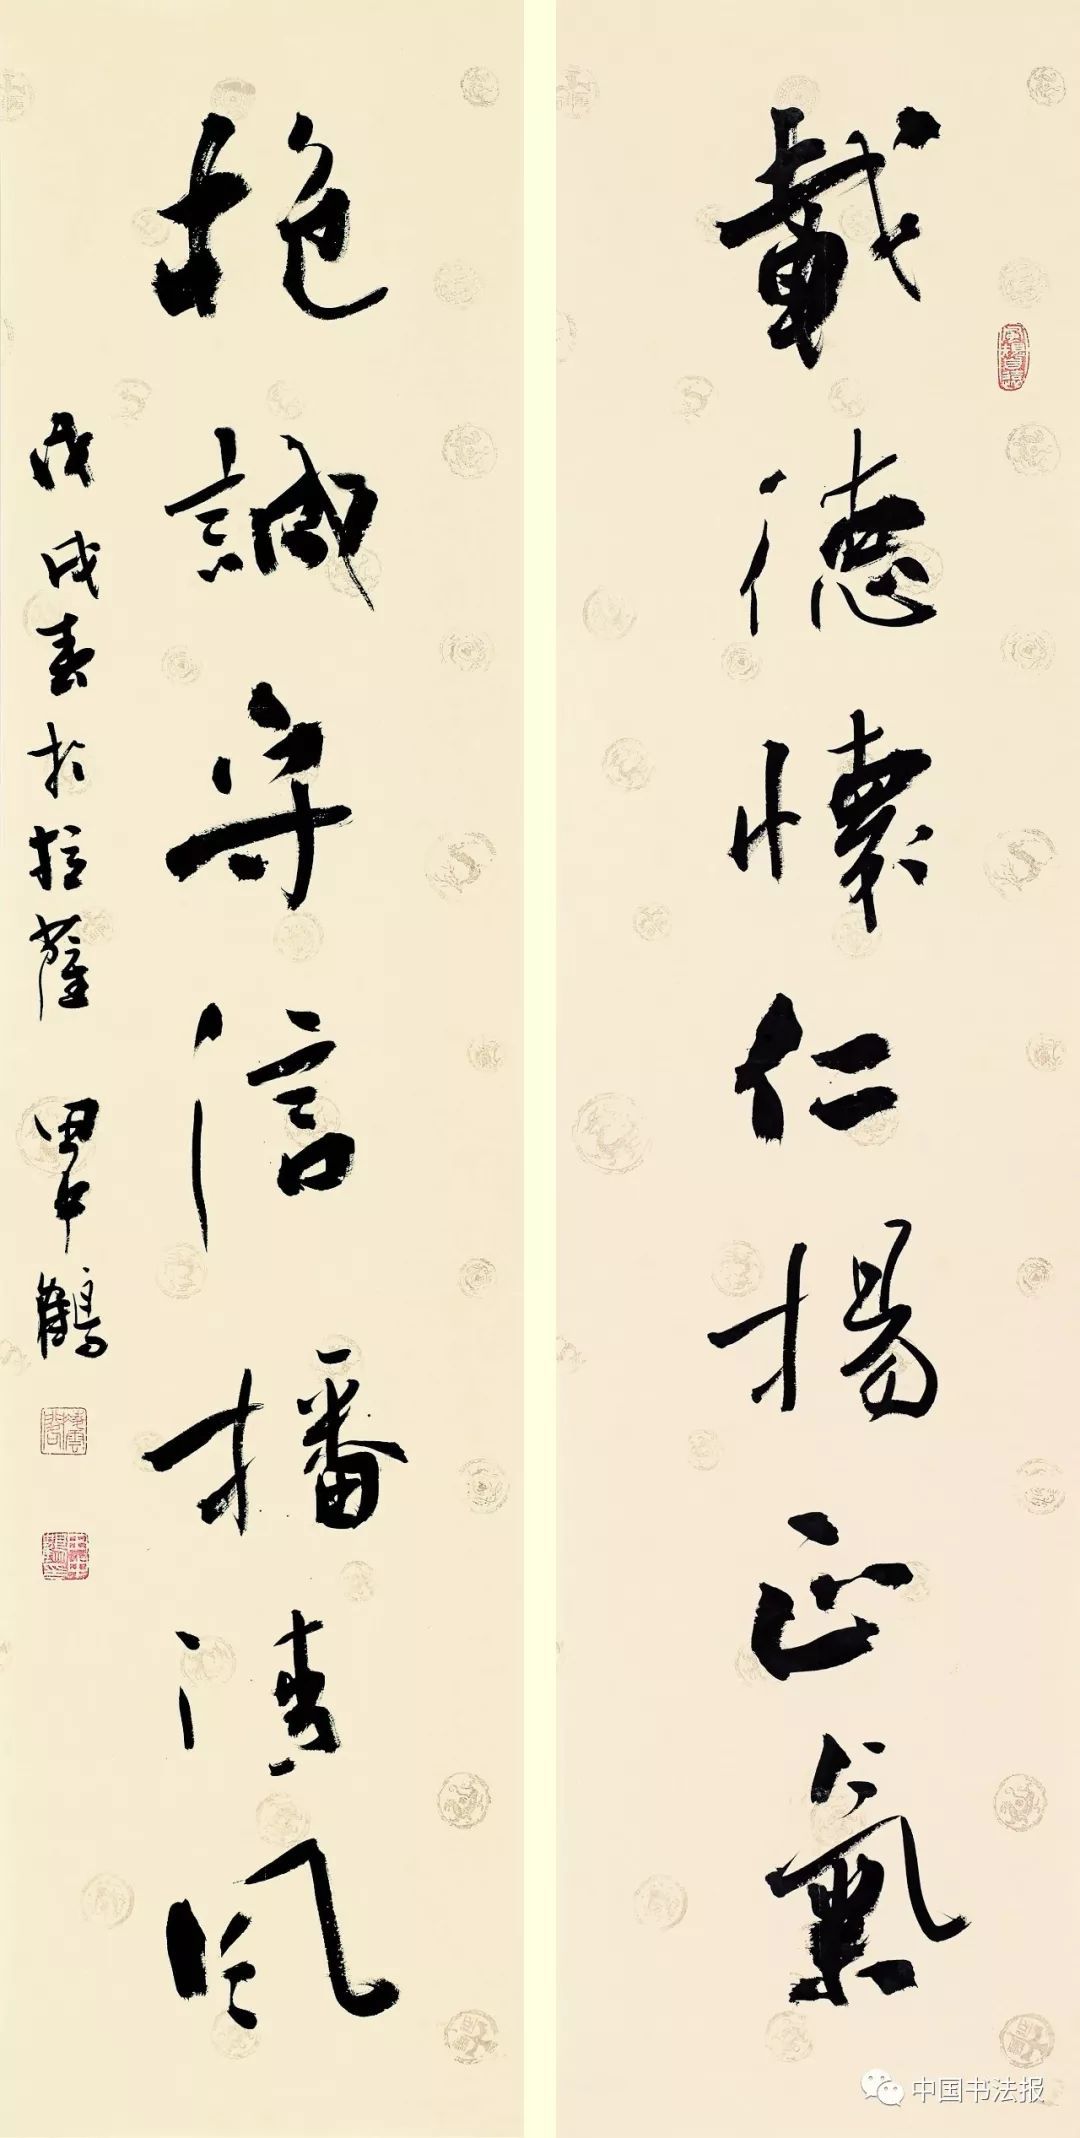 載德懷仁揚正氣
抱誠守信播清風
戊戌春於拉薩 單中鶴
中国书法报